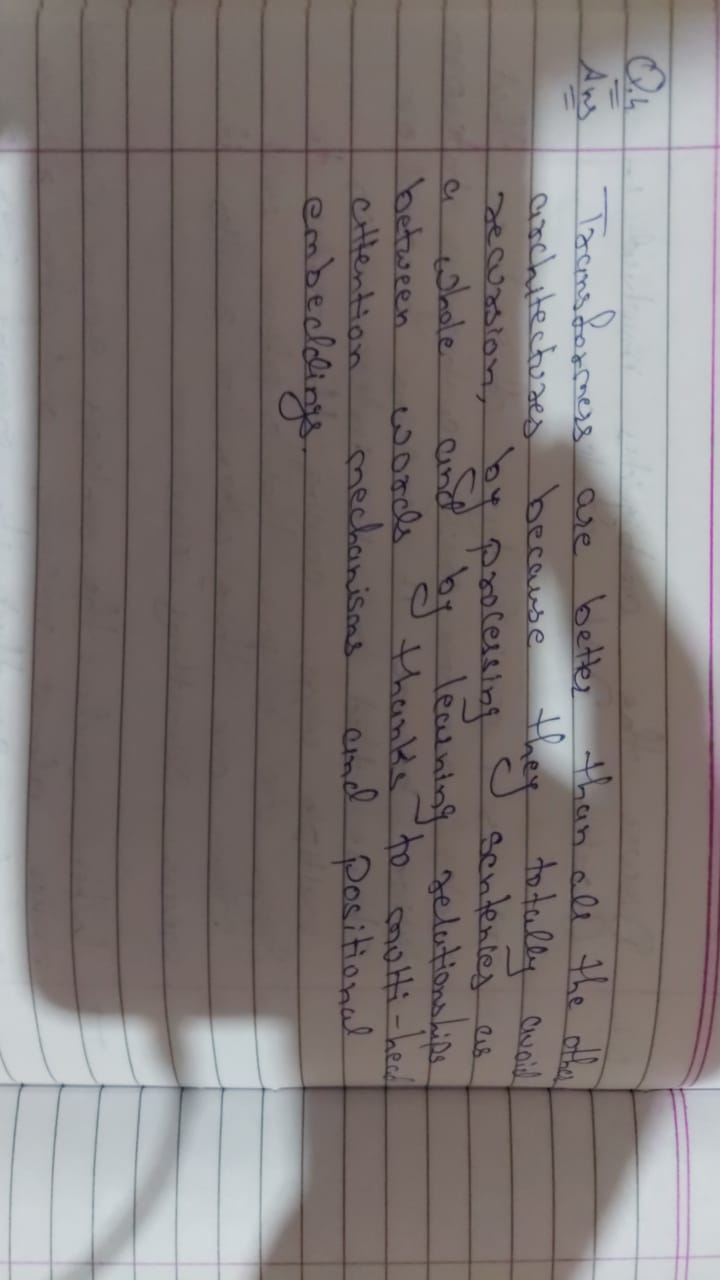 Q.4
Ans Transformers are better than all the other
architectures because they totally avoid
recursion, by processing sentences as
a whole and by learning relationships
between words thanks to multi-head
attention mechanisms and positional
embeddings.